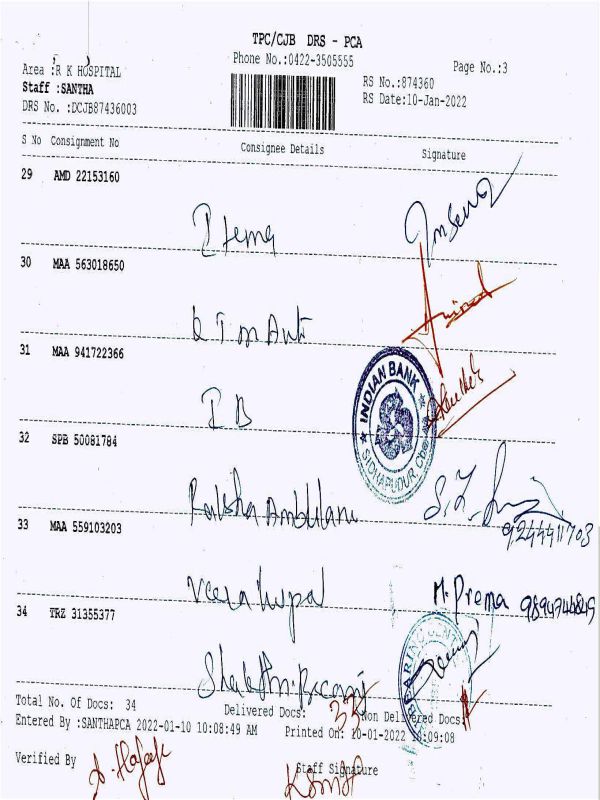 TPC/CJB DRS - PCA
Phone No.:0422-3505555
Page No.:3
Area :R K HOSPITAL
Staff :SANTHA
DRS No. :DCJB87436003
RS No.:874360
RS Date:10-Jan-2022
S No Consignment No Consignee Details Signature
29 AMD 22153160
Hema
30 MAA 563018650
31 MAA 941722366
I B
INDIAN BANK
SIDHAPUDUR,
32 SPB 50081784
Raksha
9244411703
33 MAA 559103203
Veera
M. Prema
34 TRZ 31355377
Total No. Of Docs: 34 Delivered Docs: 33 Non Delivered Docs: 1
Entered By :SANTHAPCA 2022-01-10 10:08:49 AM Printed On: 10-01-2022 10:09:08
Verified By
Staff Signature